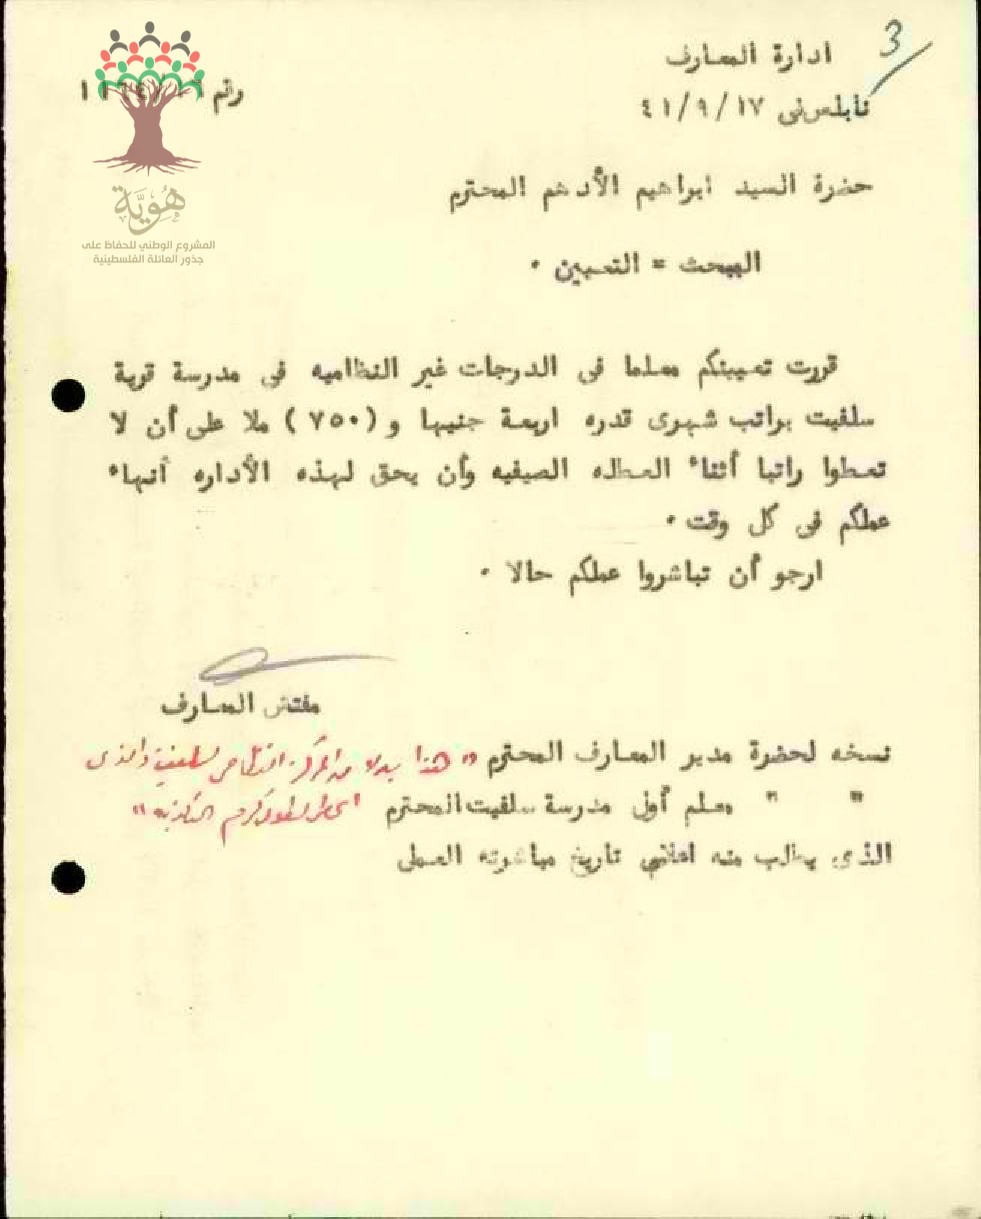 3
ادارة المعارف
نابلس فى ٤١/٩/١٧
رقم
هُوِيَّة
المشروع الوطني للحفاظ على
جذور العائلة الفلسطينية
حضرة السيد ابراهيم الأدهم المحترم
المبحث = التعيين ٠
قررت تعيينكم معلما فى الدرجات غير النظاميه فى مدرسة قرية
سلفيت براتب شهرى قدره اربعة جنيها و (٧٥٠) ملا على أن لا
تعطوا راتبا أثناء العطله الصيفيه وأن يحق لهذه الأداره أنهاء
عملكم فى كل وقت ٠
ارجو أن تباشروا عملكم حالا ٠
مفتش المعارف
نسخه لحضرة مدير المعارف المحترم " هذا بدلا من المركز
" " معلم أول مدرسة سلفيت المحترم
الذى يطلب منه اعلامي تاريخ مباشرته العمل